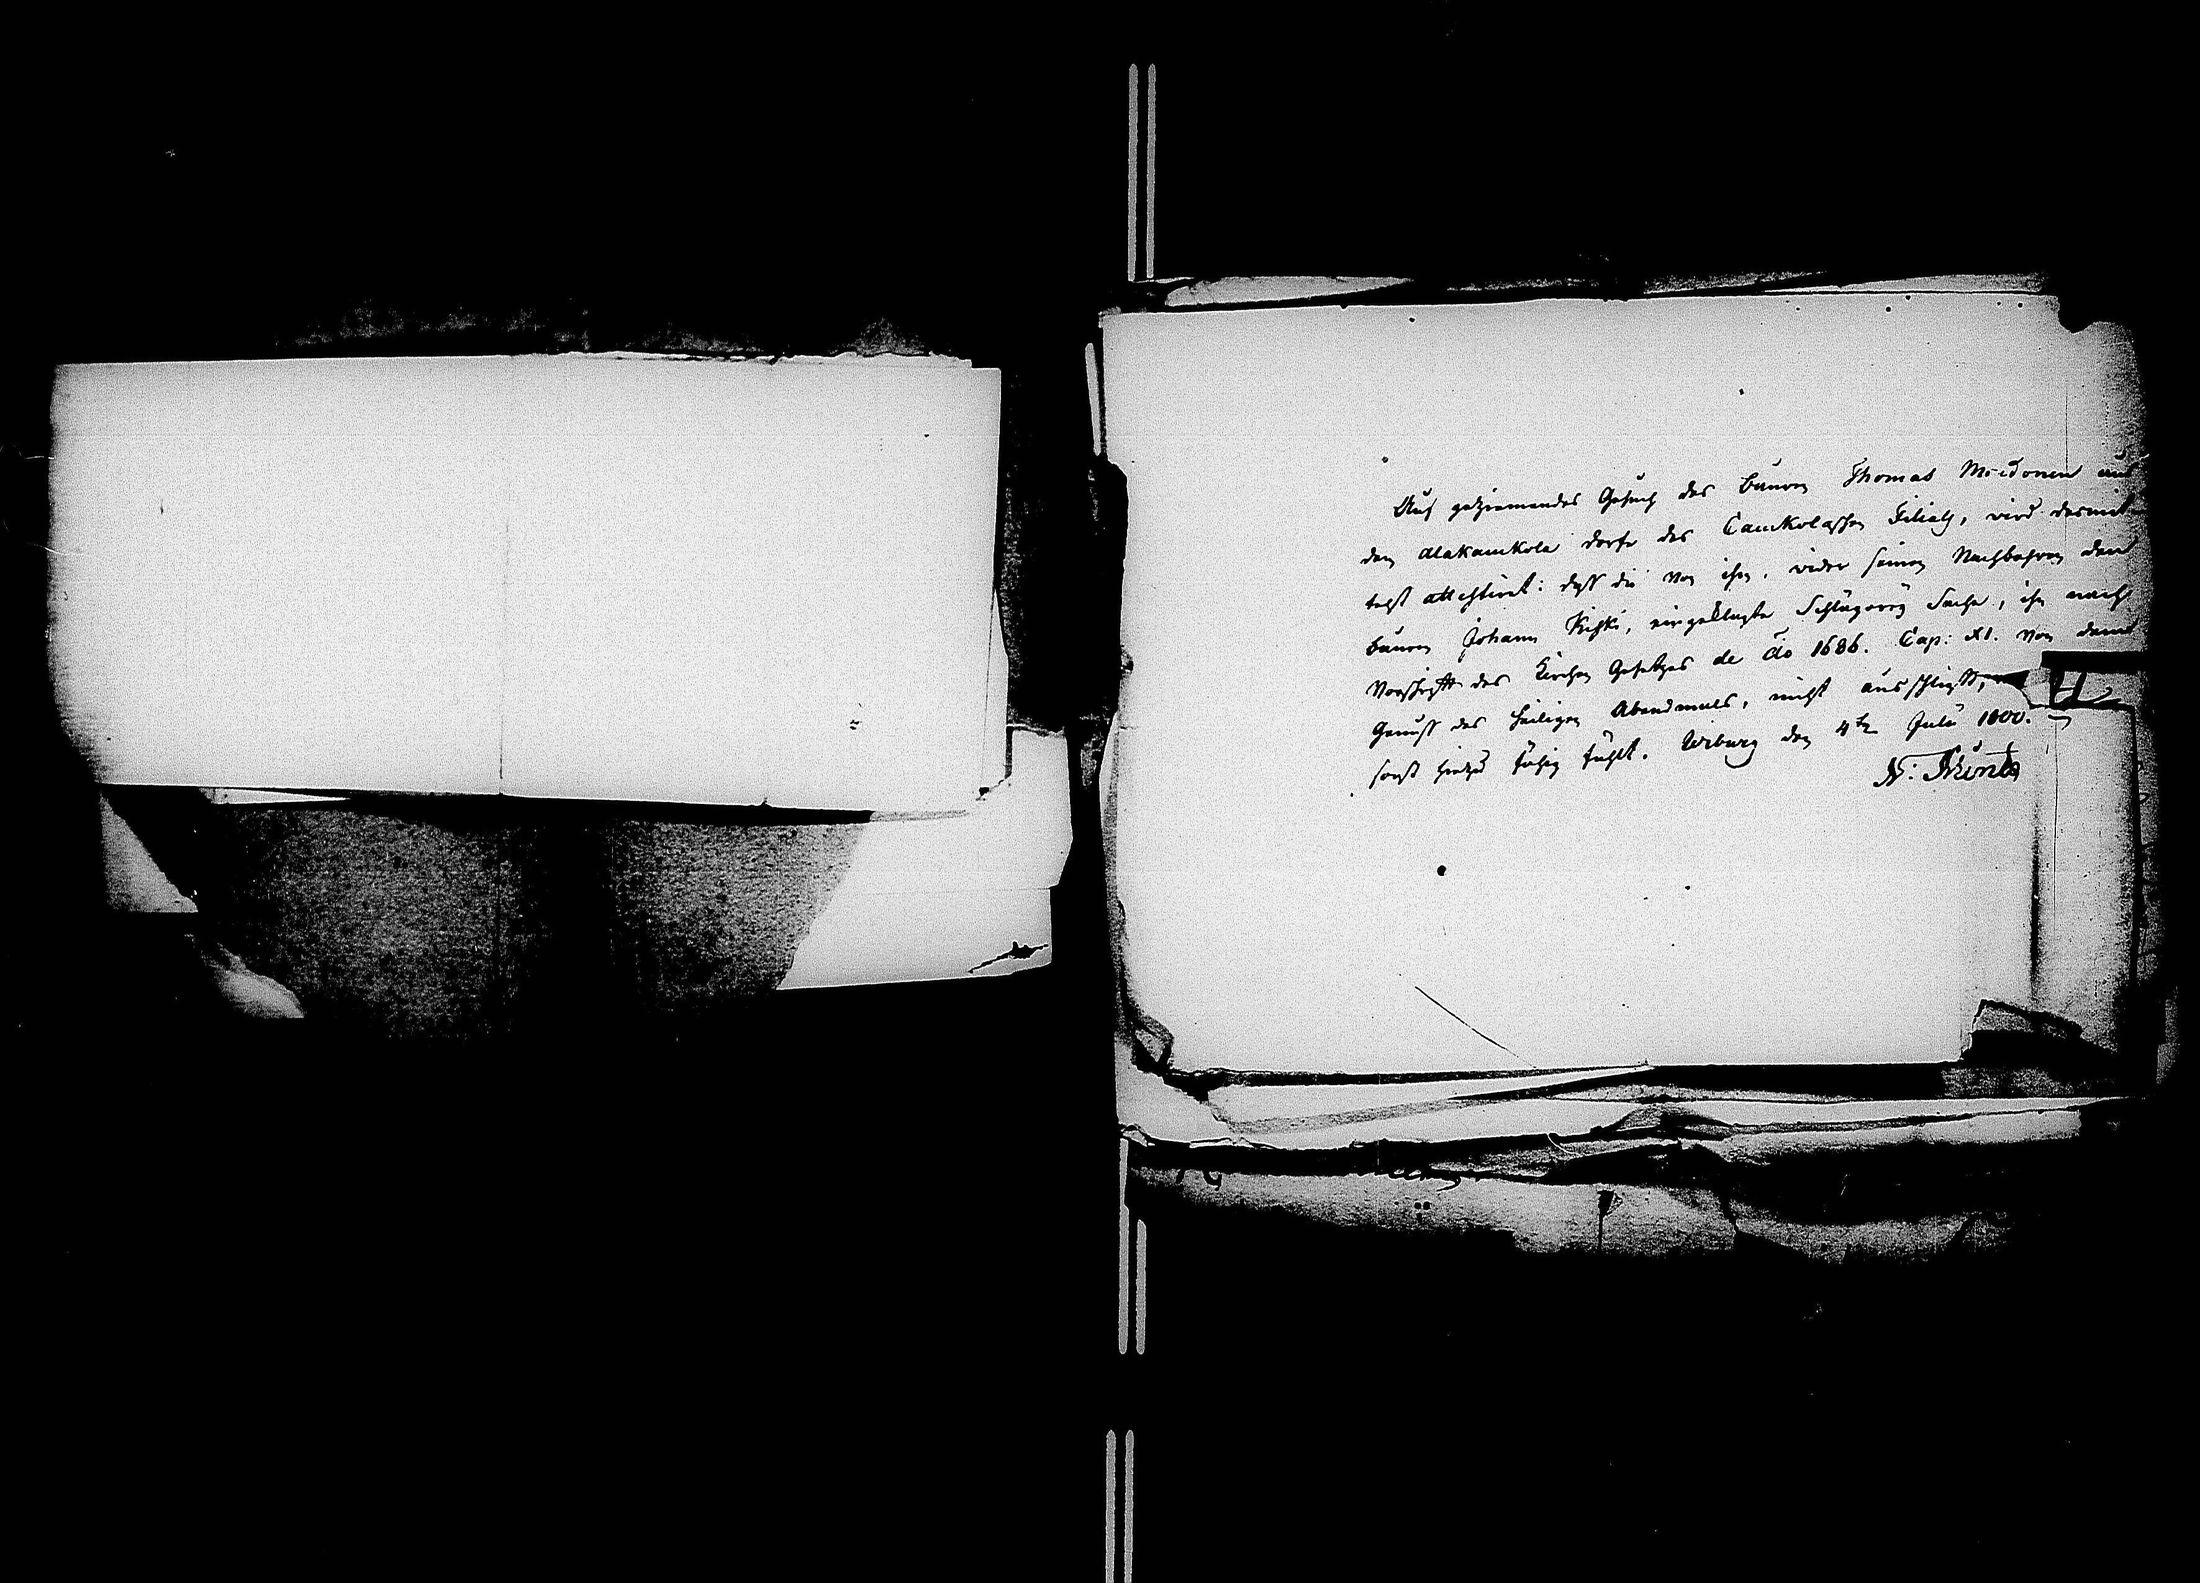 Auf geziemendes Gesuch des Bauren Thomas aus
dem Alakauckola dorfe des Cauckolaschen Filials, wird desmit-
telst attestiret: daß die von ihm, wider seinen Nachbahren den
Bauren Johann Kiski, eingeklagte Schlägerey Sache, ihn nach
Vorschrift des Kirchen Gesetzes de Ao 1686. Cap: XI. von dem
Genuß des heiligen Abendmals, nicht ausschließt,
sonst hiezu fähig fühlt. Wiburg den 4ten Julii 1800.
N: